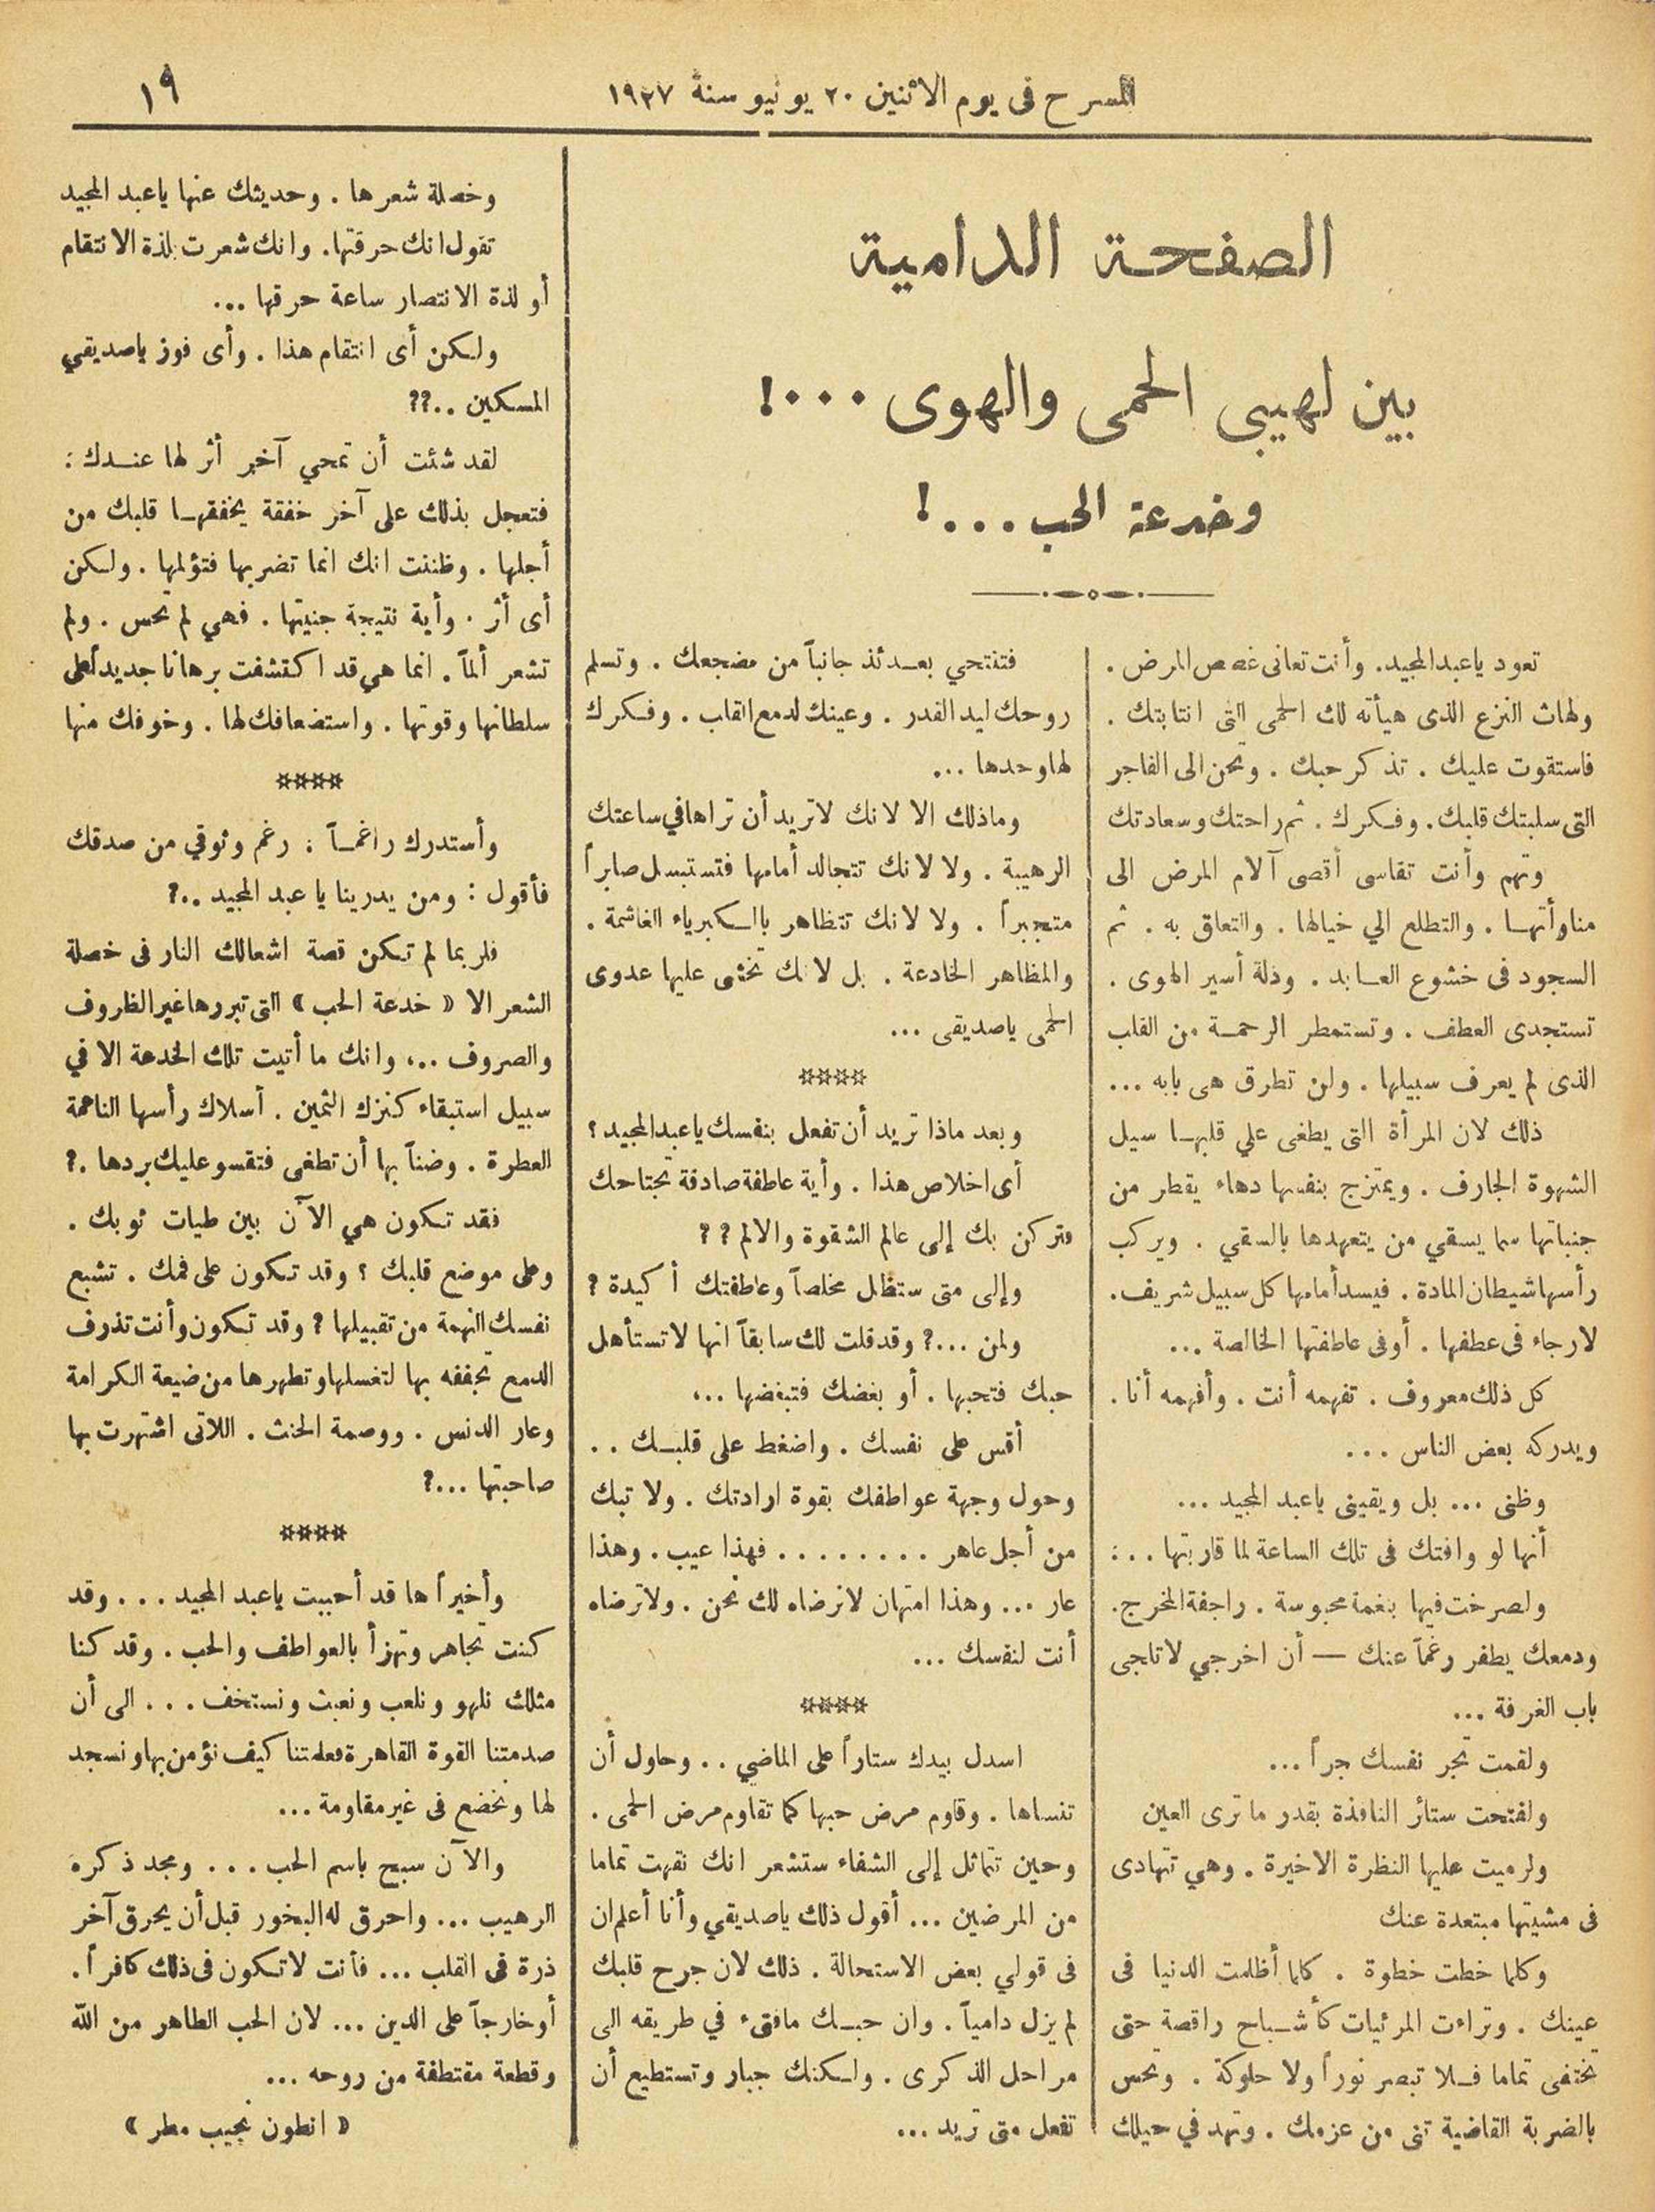 المسرح فى يوم الاثنين ٢٠ يونيو سنة ١٩٢٧
١٩
الصفحة الدامية
بين لهيبى الحمى والهوى ...!
وخدعة الحب ...!
تعود ياعبدالمجيد. وأنت تعانى غصص المرض .
ولهاث النزع الذى هيأته لك الحمى التى انتابتك .
فاستقوت عليك . تذكر حبك . وتحن الى الفاجر
التى سلبتك قلبك. وفكرك . ثم راحتك وسعادتك
وتهم وأنت تقاسى أقصى آلام المرض الى
مناوأتها . والتطلع الي خيالها . والتعلق به . ثم
السجود فى خشوع العابد . وذلة أسير الهوى .
تستجدى العطف . وتستمطر الرحمة من القلب
الذى لم يعرف سبيلها . ولن تطرق هى بابه ...
ذلك لان المرأة التى يطغى علي قلبها سيل
الشهوة الجارف . ويمتزج بنفسها دهاء يقطر من
جنباتها سما يسقي من يتعهدها بالسقي . ويركب
رأسها شيطان المادة . فيسد أمامها كل سبيل شريف.
لارجاء فى عطفها . أو فى عاطفتها الخالصة ...
كل ذلك معروف . تفهمه أنت . وأفهمه أنا .
ويدركه بعض الناس ...
وظنى ... بل ويقينى ياعبد المجيد ...
أنها لو وافتك فى تلك الساعة لما قاربتها ..:
ولصرخت فيها بنغمة محبوسة . راجفة المخرج.
ودمعك يطفر رغماً عنك — أن اخرجي لاتلجى
باب الغرفة ...
ولقمت تجر نفسك جراً ...
ولفتحت ستائر النافذة بقدر ما ترى العين
ولرميت عليها النظرة الاخيرة . وهي تتهادى
فى مشيتها مبتعدة عنك
وكلما خطت خطوة . كلما أظلمت الدنيا فى
عينك . وتراءت المرئيات كأشباح راقصة حتى
تختفى تماما فلا تبصر نوراً ولا حلوكة . وتحس
بالضربة القاضية تنى من عزمك . وتهد في حيلك
فتنتحي بعدئذ جانباً من مضجعك . وتسلم
روحك ليد القدر . وعينك لدمع القلب . وفكرك
لها وحدها ...
وماذلك الا لانك لاتريد أن تراها في ساعتك
الرهيبة . ولا لانك تتجالد أمامها فتستبسل صابراً
متجبراً . ولا لانك تتظاهر بالكبرياء الغاشمة .
والمظاهر الخادعة . بل لانك تخشى عليها عدوى
الحمى ياصديقى ...
****
وبعد ماذا تريد أن تفعل بنفسك ياعبدالمجيد ؟
أى اخلاص هذا . وأية عاطفة صادقة تجتاحك
فتركن بك إلى عالم الشقوة والالم ؟؟
وإلى متى ستظل مخلصاً وعاطفتك أكيدة ؟
ولمن ...؟ وقد قلت لك سابقاً انها لا تستأهل
حبك فتحبها . أو بغضك فتبغضها ...
أقس على نفسك . واضغط على قلبك ..
وحول وجهة عواطفك بقوة ارادتك . ولا تبك
من أجل عاهر ........ فهذا عيب . وهذا
عار ... وهذا امتهان لانرضاه لك نحن . ولا ترضاه
أنت لنفسك ...
****
اسدل بيدك ستاراً على الماضي .. وحاول أن
تنساها . وقاوم مرض حبها كما تقاوم مرض الحمى .
وحين تتماثل إلى الشفاء ستشعر انك نقهت تماما
من المرضين ... أقول ذلك ياصديقي وأنا أعلم ان
فى قولي بعض الاستحالة . ذلك لان جرح قلبك
لم يزل دامياً . وان حبك مافتىء في طريقه الى
مراحل الذكرى . ولكنك جبار وتستطيع أن
تفعل متى تريد ...
وخصلة شعرها . وحديثك عنها ياعبد المجيد
تقول انك حرقتها. وانك شعرت بلذة الانتقام
أو لذة الانتصار ساعة حرقها ...
ولكن أى انتقام هذا . وأى فوز ياصديقي
المسكين ..؟؟
لقد شئت أن تمحي آخر أثر لها عندك :
فتعجل بذلك على آخر خفقة يخفقها قلبك من
أجلها . وظننت انك انما تضربها فتؤلمها . ولكن
أى أثر . وأية نتيجة جنيتها . فهي لم تحس . ولم
تشعر ألماً . انما هي قد اكتشفت برهانا جديداً على
سلطانها وقوتها . واستضعافك لها . وخوفك منها
****
وأستدرك راغماً : رغم وثوقي من صدقك
فأقول : ومن يدرينا يا عبد المجيد ..؟
فلربما لم تكن قصة اشعالك النار فى خصلة
الشعر الا « خدعة الحب » التى تبررها غير الظروف
والصروف ... وانك ما أتيت تلك الخدعة الا في
سبيل استبقاء كنزك الثمين . أسلاك رأسها الناعمة
العطرة . وضناً بها أن تطغى فتقسو عليك بردها .؟
فقد تكون هي الآن بين طيات ثوبك .
وعلى موضع قلبك ؟ وقد تكون على فمك . تشبع
نفسك النهمة من تقبيلها ؟ وقد تكون وأنت تذرف
الدمع تجففه بها لتغسلها وتطهرها من ضيعة الكرامة
وعار الدنس . ووصمة الخنث . اللاتى اشتهرت بها
صاحبتها ...؟
****
وأخيراً ها قد أحببت ياعبد المجيد ... وقد
كنت تجاهر وتهزأ بالعواطف والحب . وقد كنا
مثلك نلهو ونلعب ونعبث ونستخف ... الى أن
صدمتنا القوة القاهرة فعلمتنا كيف نؤمن بها ونسجد
لها ونخضع فى غير مقاومة ...
والآن سبح باسم الحب ... ومجد ذكره
الرهيب ... واحرق له البخور قبل أن يحرق آخر
ذرة فى القلب ... فأنت لا تكون فى ذلك كافراً .
أو خارجاً على الدين ... لان الحب الطاهر من الله
وقطعة مقتطفة من روحه ...
« انطون نجيب مطر »